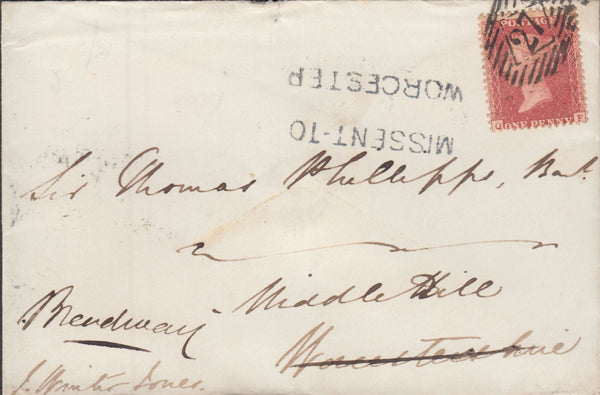 POSTAGE
27
ONE PENNY
MISSENT-TO
WORCESTER
Sir Thomas Phillipps, Bart
Middle Hill
Broadway
Worcestershire
J. Winter Jones.